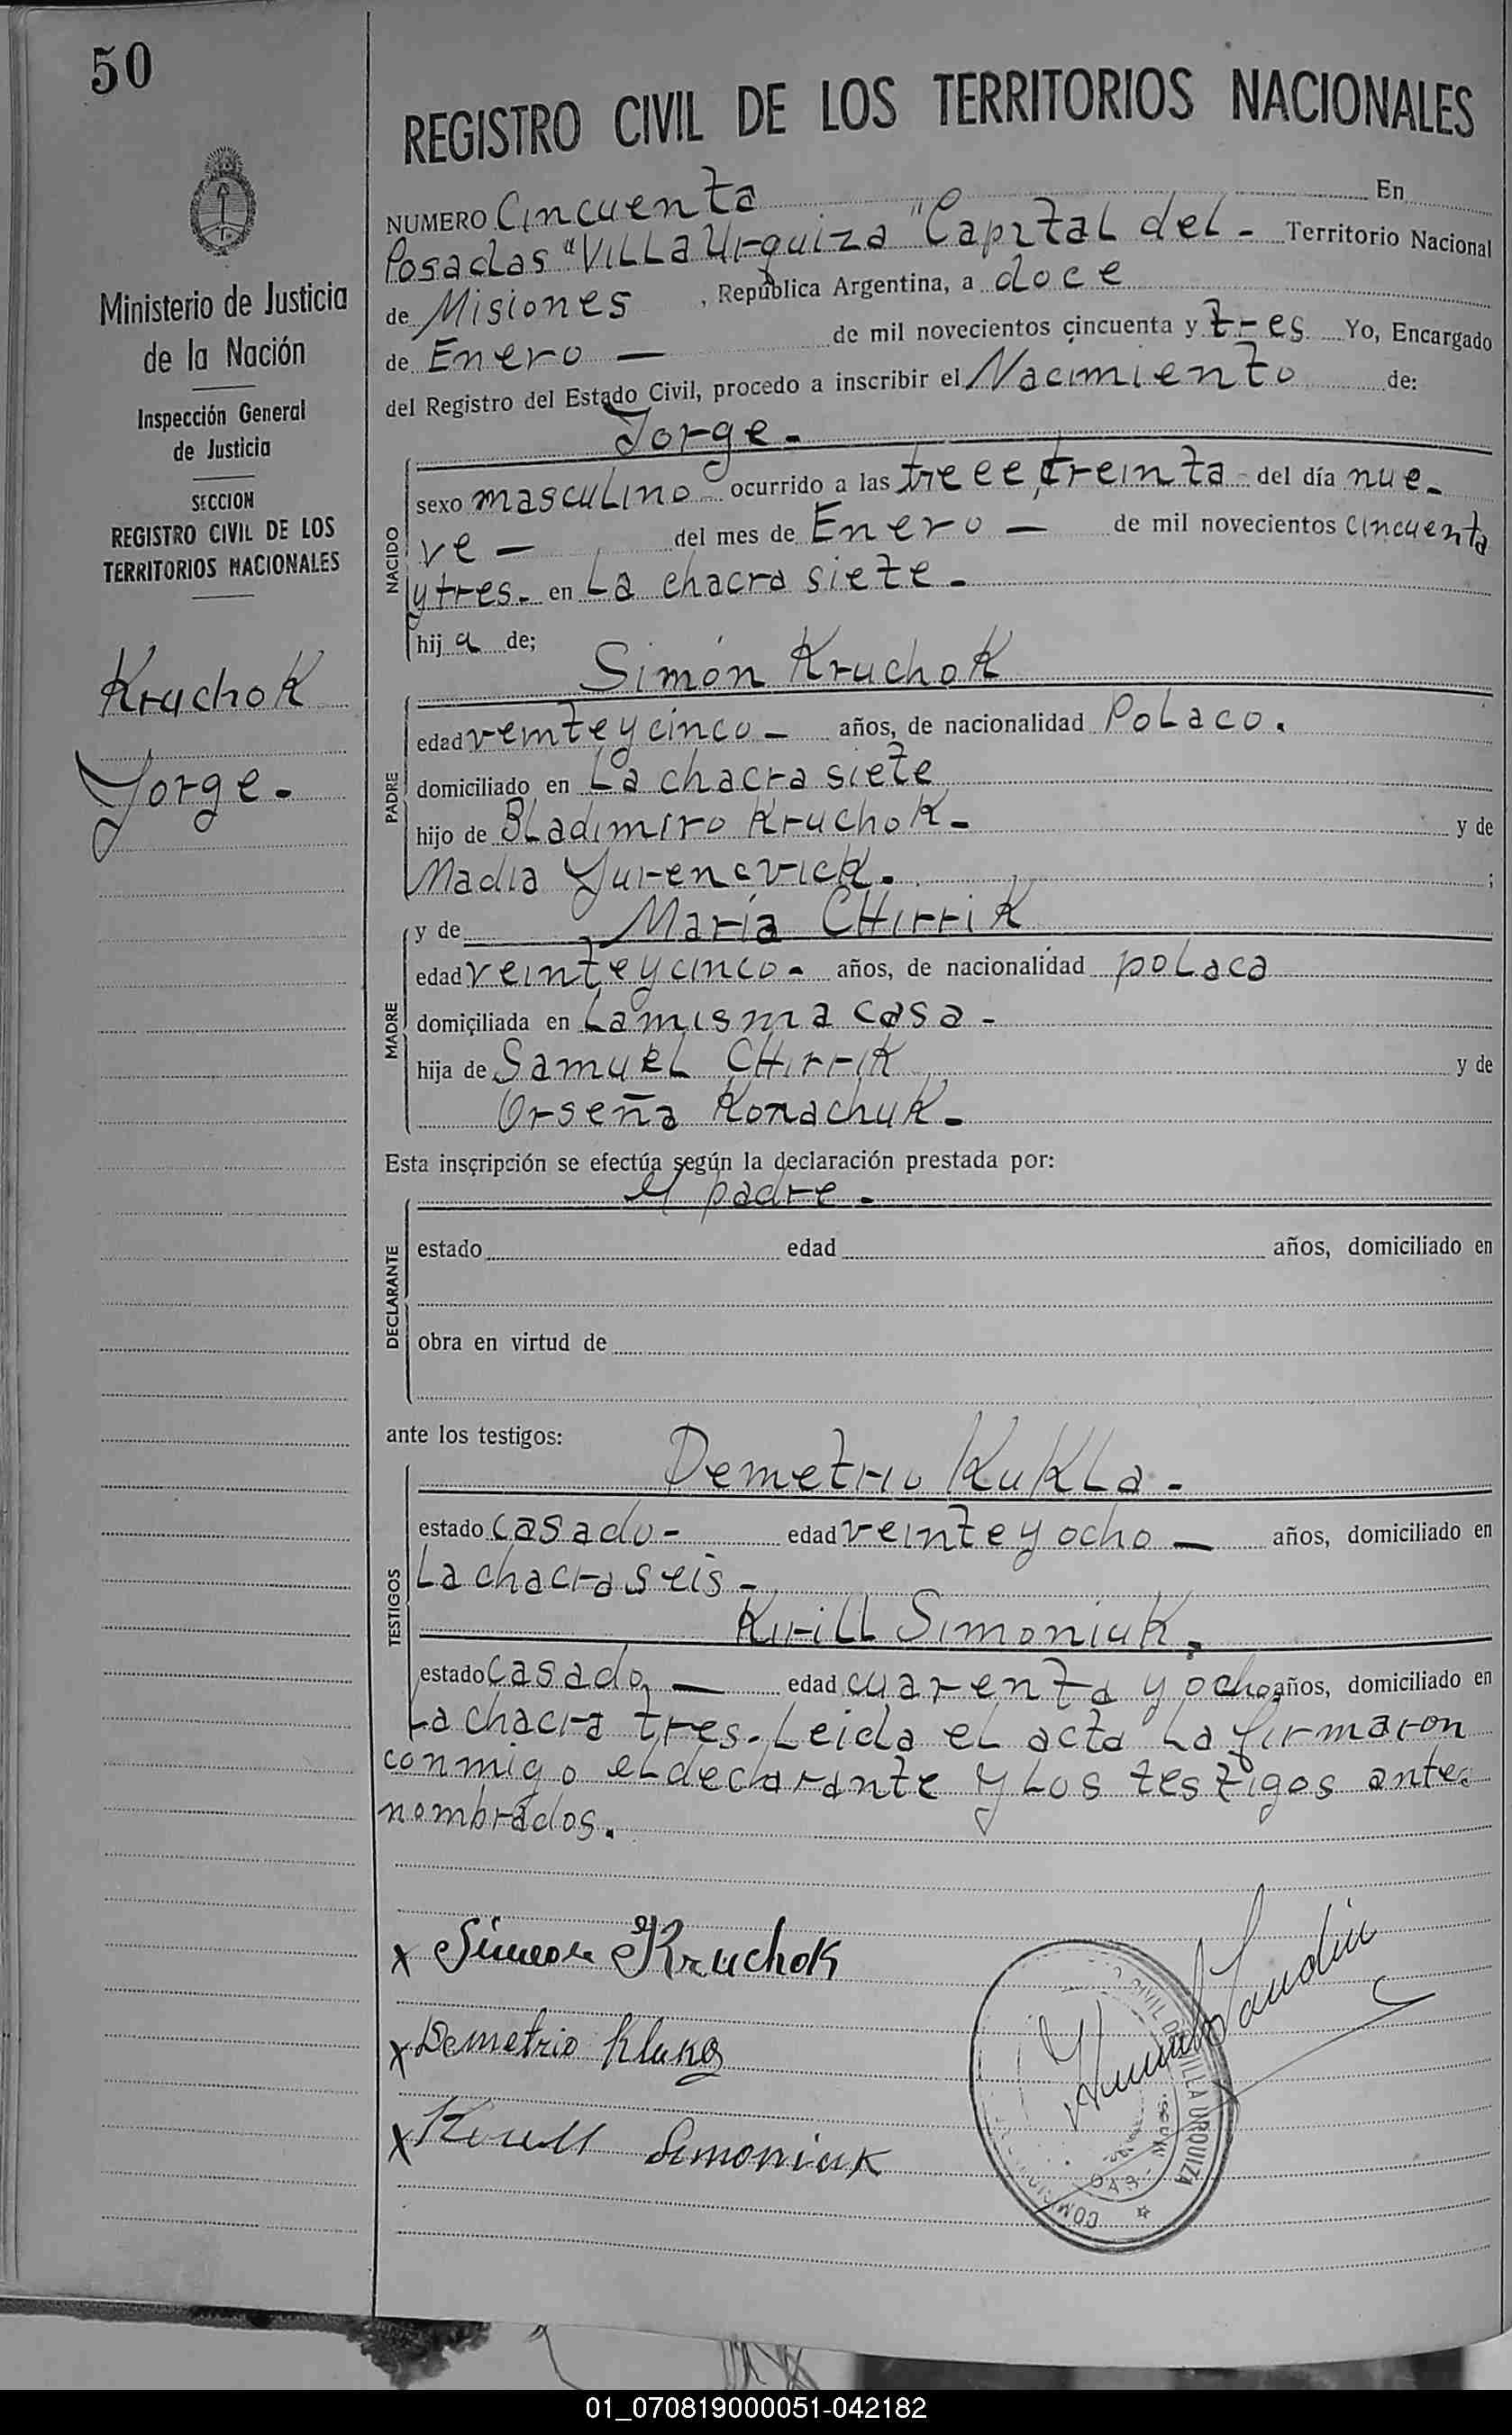 50
Ministerio de Justicia
de la Nación
Inspección General
de Justicia
SECCION
REGISTRO CIVIL DE LOS
TERRITORIOS NACIONALES
Kruchok
Jorge.-
REGISTRO CIVIL DE LOS TERRITORIOS NACIONALES
NUMERO Cincuenta En
Posadas "Villa Urquiza" Capital del - Territorio Nacional
de Misiones, República Argentina, a doce
de Enero — de mil novecientos cincuenta y tres Yo, Encargado
del Registro del Estado Civil, procedo a inscribir el Nacimiento de:
Jorge.-
NACIDO
sexo masculino ocurrido a las trece, treinta - del día nue-
ve — del mes de Enero — de mil novecientos cincuenta
y tres.- en La chacra siete.-
hija de;
Simón Kruchok
PADRE
edad veinte y cinco - años, de nacionalidad Polaco.
domiciliado en La chacra siete
hijo de Bladimiro Kruchok - y de
Madia Yurenevick.- ;
MADRE
y de María CHirrik
edad veinte y cinco - años, de nacionalidad polaca
domiciliada en La misma casa -
hija de Samuel CHirrik y de
Orseña Konachuk.-
Esta inscripción se efectúa según la declaración prestada por:
el padre.-
DECLARANTE
estado edad años, domiciliado en
obra en virtud de
ante los testigos:
Demetrio Kukla.-
TESTIGOS
estado casado - edad veinte y ocho — años, domiciliado en
La chacra seis -
Kirill Simoniuk.
estado casado, — edad cuarenta y ocho años, domiciliado en
La chacra tres. Leida el acta la firmaron
conmigo el declarante y los testigos ante-
nombrados.
x Simeon Kruchok
x Demetrio
x Kirill Simoniuk
VILLA URQUIZA
01_070819000051-042182